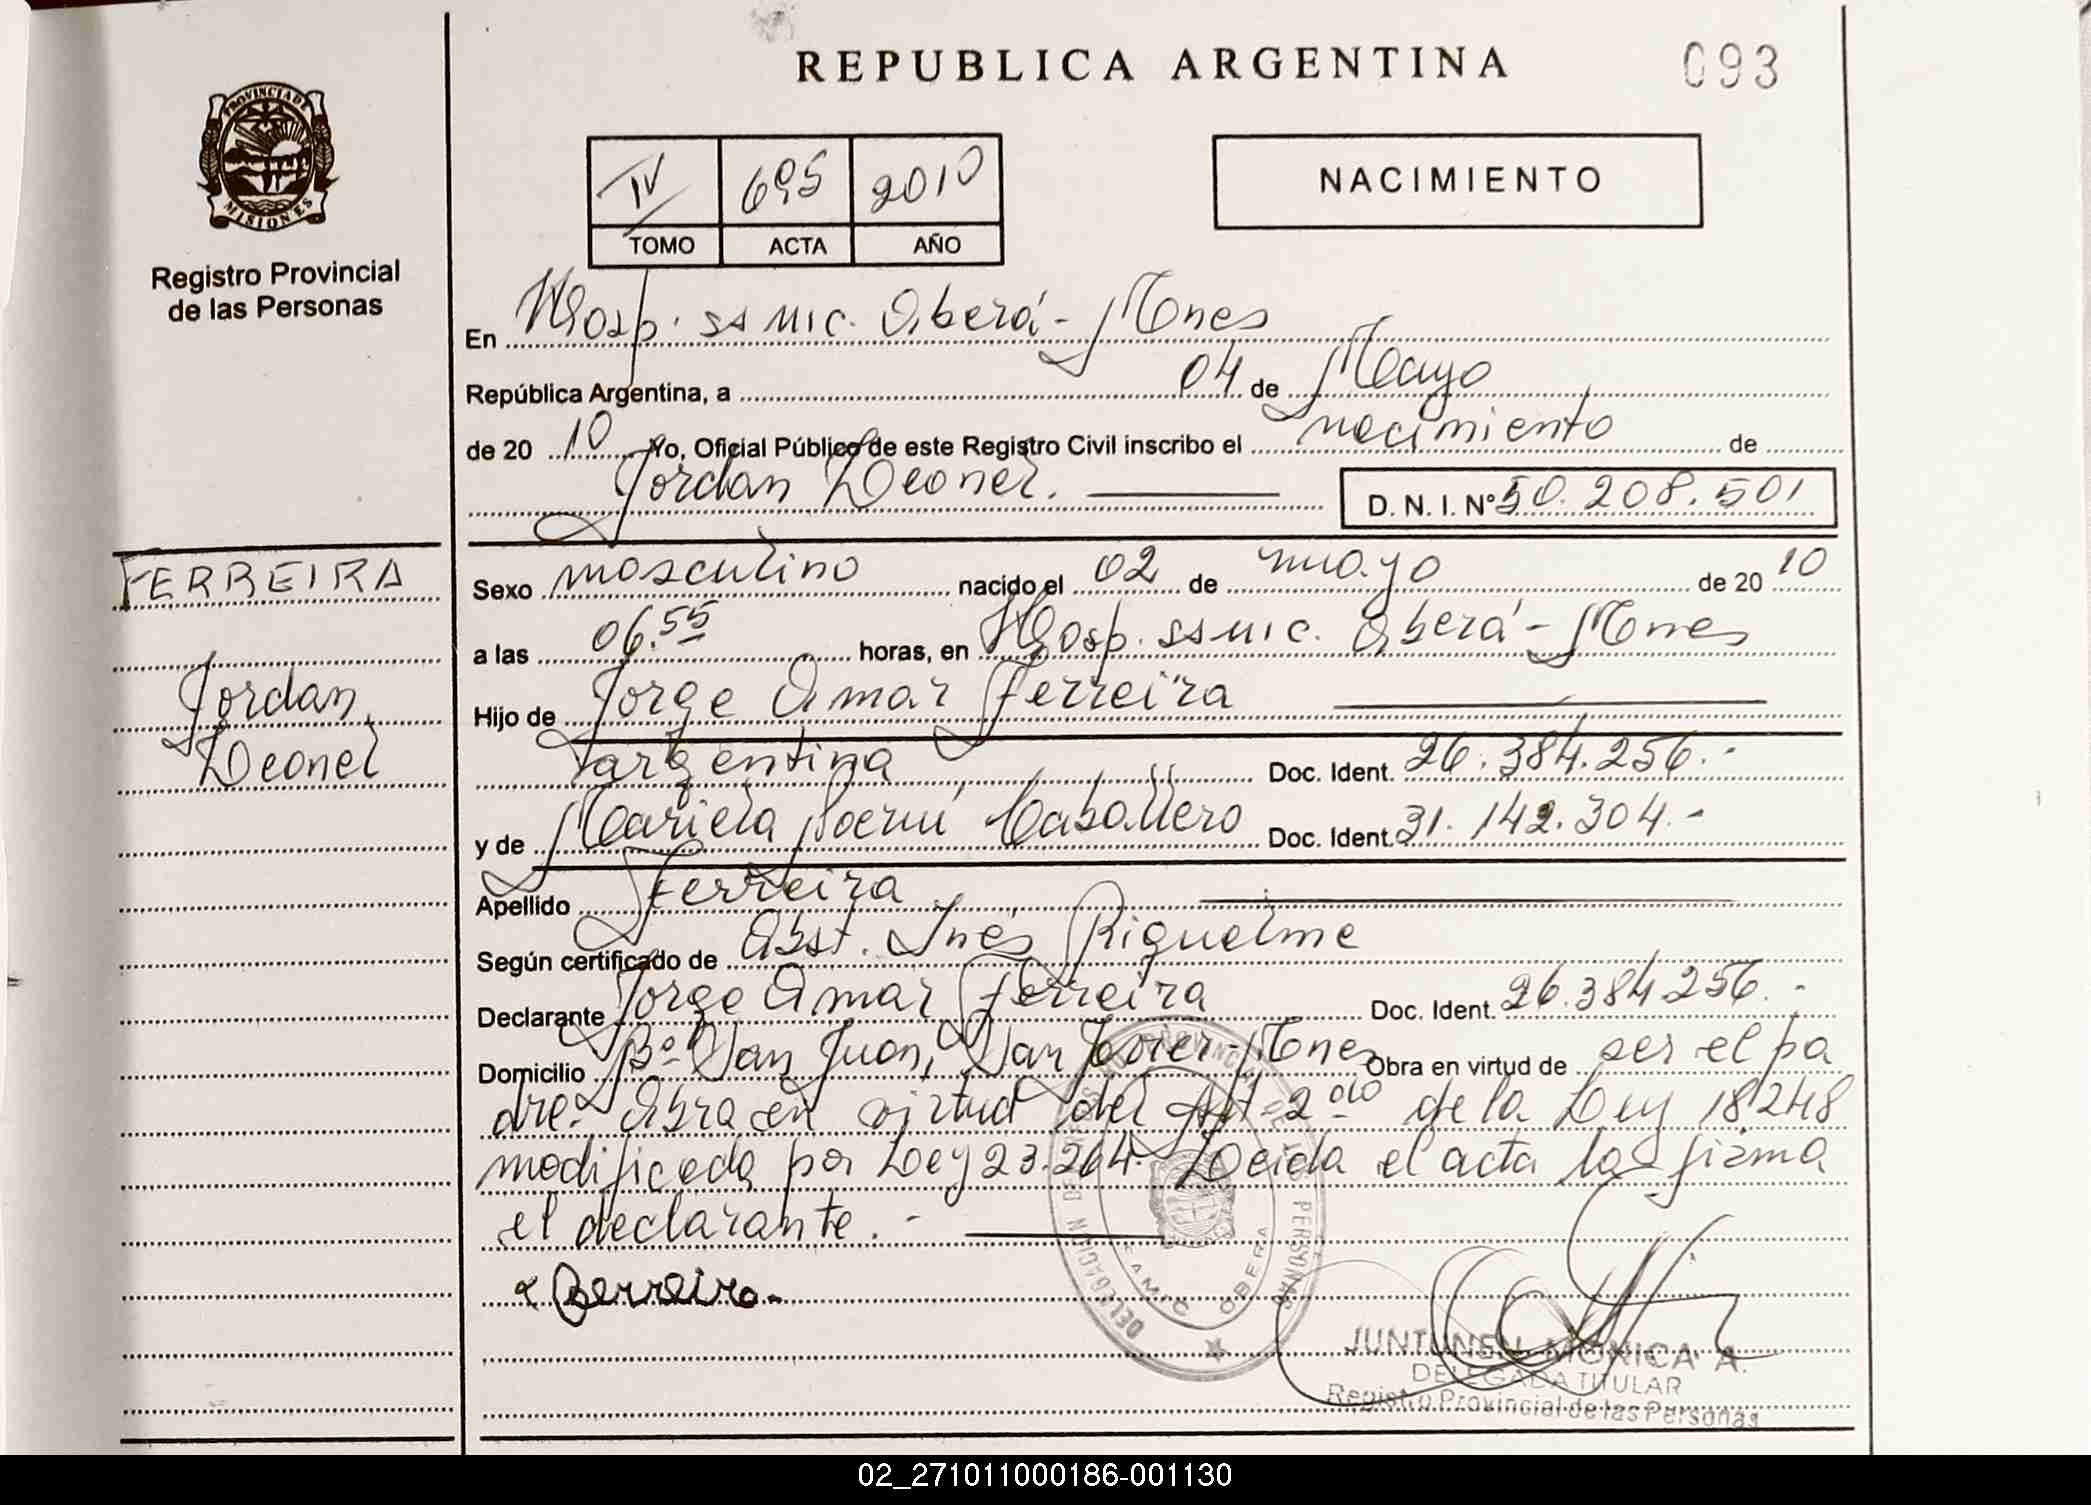 REPUBLICA ARGENTINA
093
PROVINCIA DE
MISIONES
Registro Provincial
de las Personas
IV 695 2010
TOMO ACTA AÑO
NACIMIENTO
En Hosp. ss mic. Oberá - Mnes
República Argentina, a 04 de Mayo
de 20 10 Yo, Oficial Público de este Registro Civil inscribo el nacimiento de
Jordan Leonel.
D. N. I. Nº 50.208.501
FERREIRA
Jordan
Leonel
Sexo masculino nacido el 02 de mayo de 20 10
a las 06.55 horas, en Hosp. ss mic. Oberá - Mnes
Hijo de Jorge Omar Ferreira
argentina Doc. Ident. 26.384.256.-
y de Mariela Noemí Caballero Doc. Ident. 31.142.304.-
Apellido Ferreira
Según certificado de Obst. Inés Riquelme
Declarante Jorge Omar Ferreira Doc. Ident. 26.384.256.-
Domicilio Bº San Juan, San Javier - Mnes Obra en virtud de ser el pa
dre. Obra en virtud del Art. 2 do de la Ley 18248
modificada por Ley 23.264. Leída el acta la firma
el declarante.-
Ferreira
DELEGACION DE REGISTRO PROVINCIAL DE LAS PERSONAS
OBERA
JUNTUNEN MONICA A.
DELEGADA TITULAR
Registro Provincial de las Personas
02_271011000186-001130